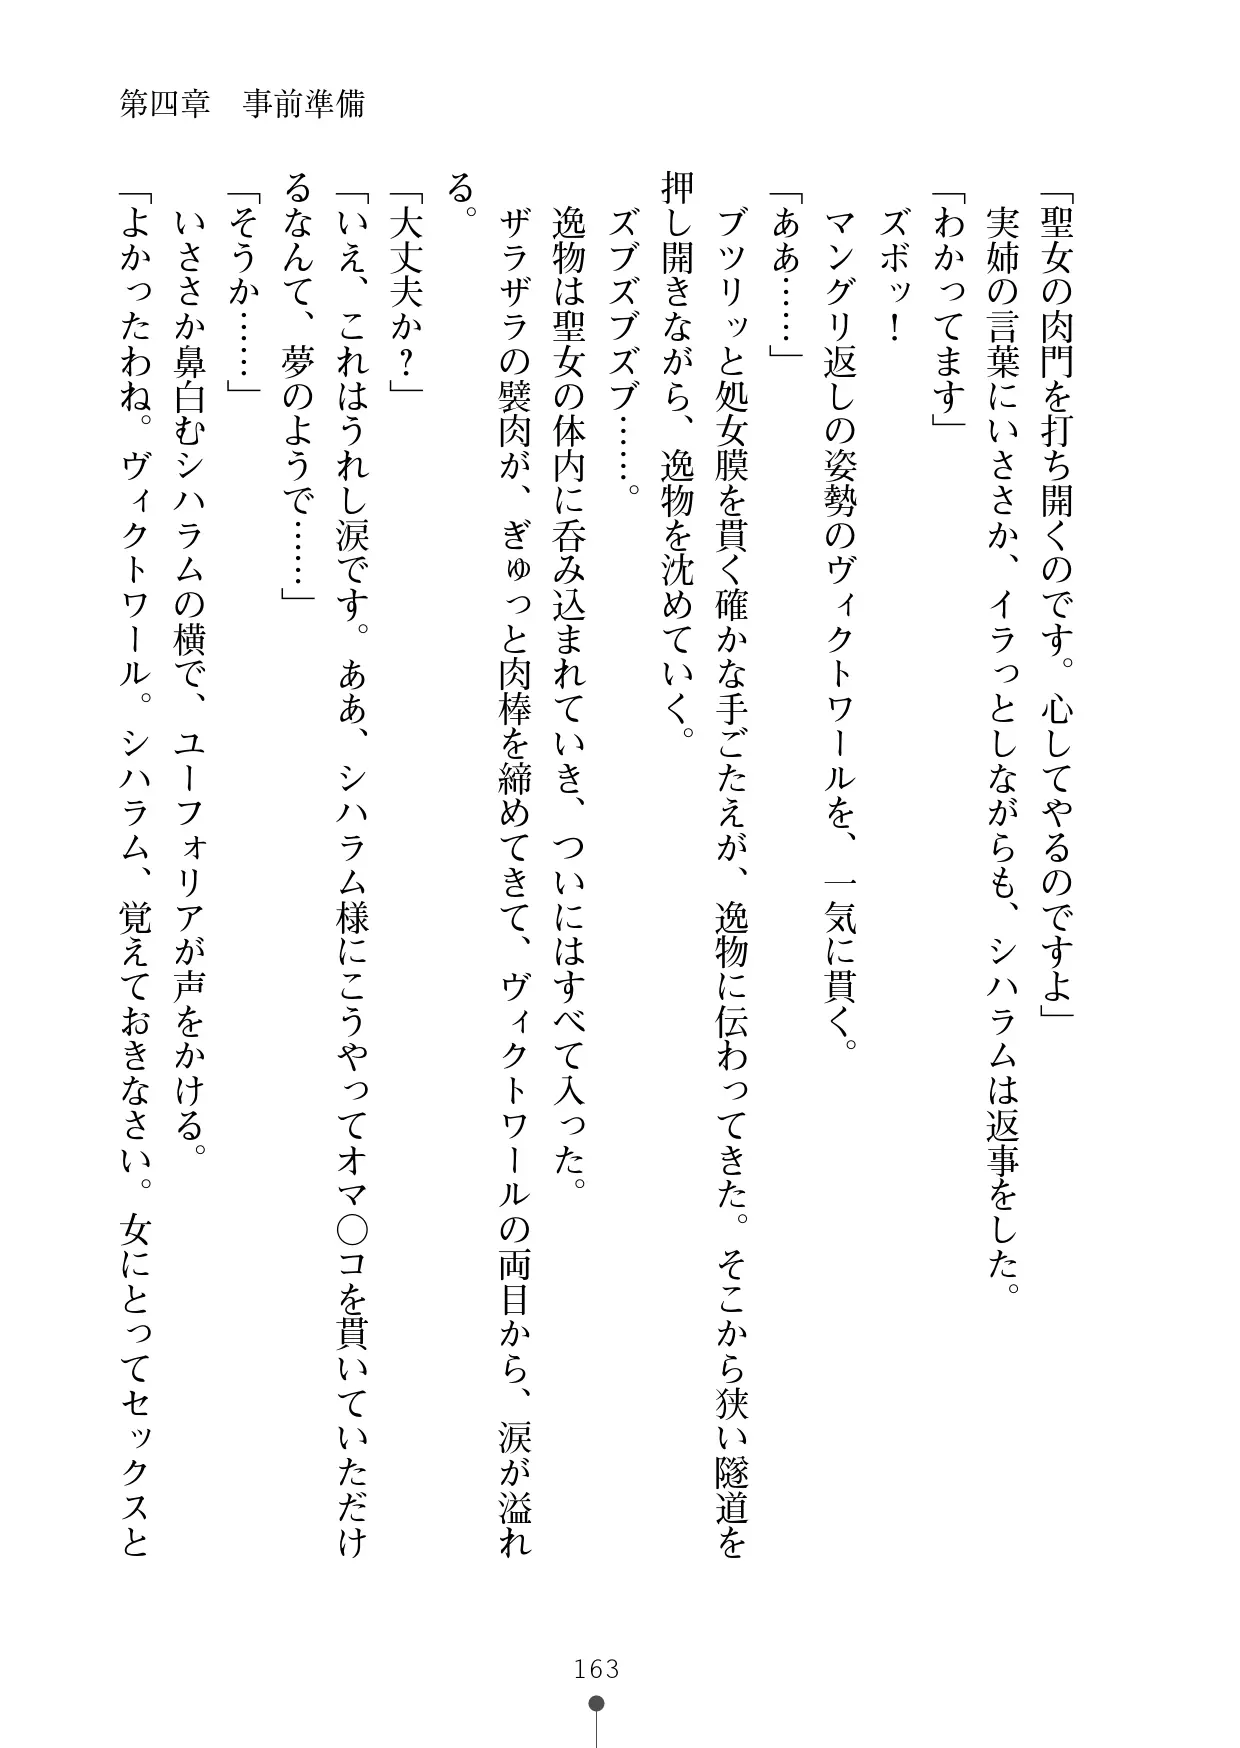 第四章　事前準備
「聖女の肉門を打ち開くのです。心してやるのですよ」
　実姉の言葉にいささか、イラっとしながらも、シハラムは返事をした。
「わかってます」
　ズボッ！
　マングリ返しの姿勢のヴィクトワールを、一気に貫く。
「ああ……」
　ブツリッと処女膜を貫く確かな手ごたえが、逸物に伝わってきた。そこから狭い隧道を
押し開きながら、逸物を沈めていく。
　ズブズブズブ……。
　逸物は聖女の体内に呑み込まれていき、ついにはすべて入った。
　ザラザラの襞肉が、ぎゅっと肉棒を締めてきて、ヴィクトワールの両目から、涙が溢れ
る。
「大丈夫か？」
「いえ、これはうれし涙です。ああ、シハラム様にこうやってオマ〇コを貫いていただけ
るなんて、夢のようで……」
「そうか……」
　いささか鼻白むシハラムの横で、ユーフォリアが声をかける。
「よかったわね。ヴィクトワール。シハラム、覚えておきなさい。女にとってセックスと
163